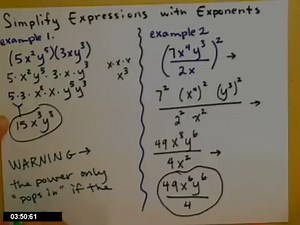 Simplify Expressions with Exponents
example 1.
(5x²y⁵)(3xy³)
5·x²y⁵·3·x·y³
x·x·x
x³
5·3·x²·x·y⁵y³
15x³y⁸
WARNING →
the power only
"pops in" if the
example 2
(7x⁴y³
2x)² →
7² (x⁴)² (y³)²
2² x² →
49x⁸y⁶
4x² →
49x⁶y⁶
4
03:50:61